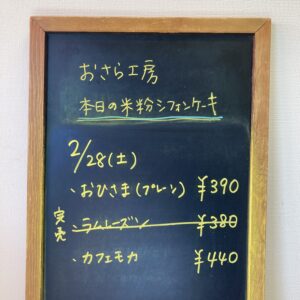 おさら工房
本日の米粉シフォンケーキ
2/28(土)
・おひさま(プレーン) ¥390
完売 ・ラムレーズン ¥380
・カフェモカ ¥440